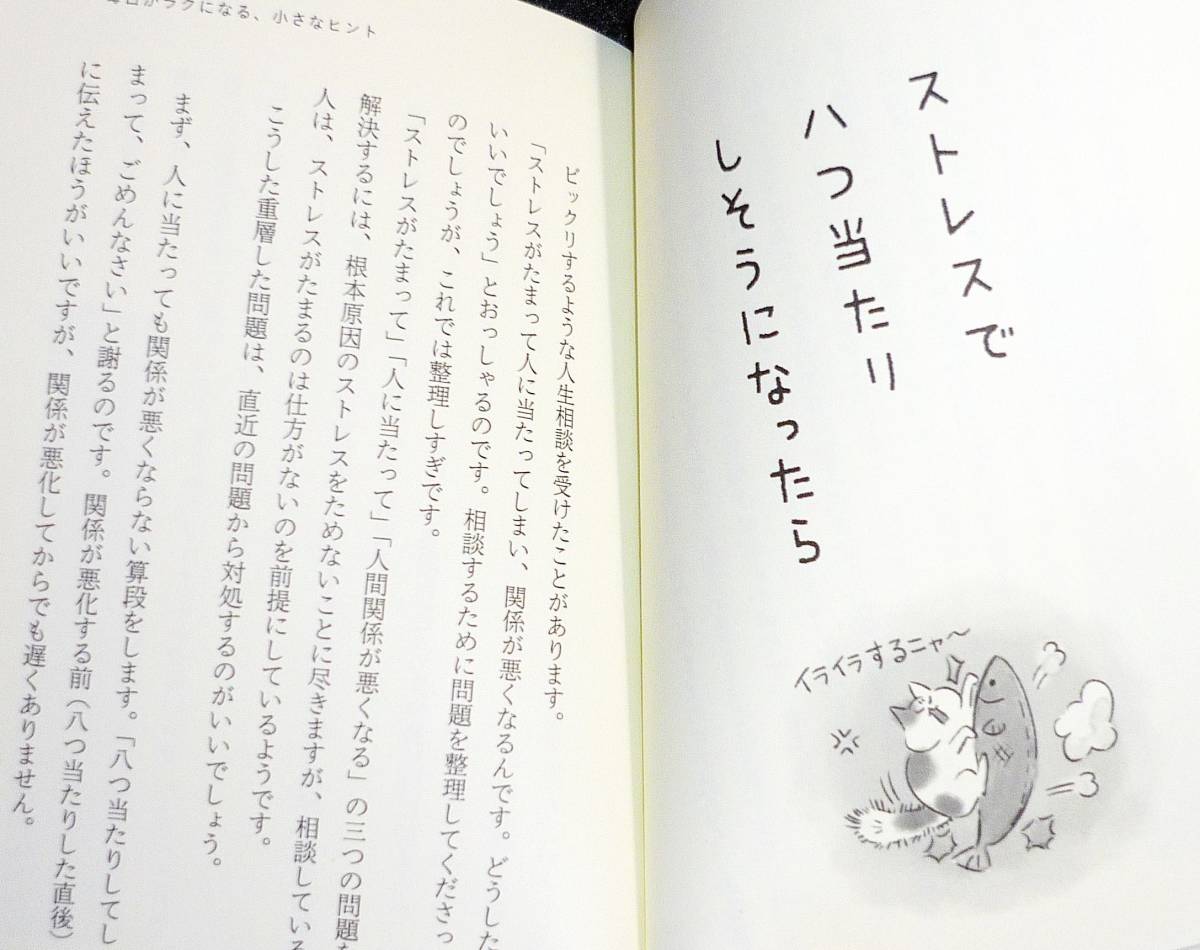 ストレスで
八つ当たり
しそうになったら
イライラするニャ〜
毎日がラクになる、小さなヒント
ビックリするような人生相談を受けたことがあります。
「ストレスがたまって人に当たってしまい、関係が悪くなるんです。どうした
いいでしょう」とおっしゃるのです。相談するために問題を整理してくださっ
のでしょうが、これでは整理しすぎです。
「ストレスがたまって」「人に当たって」「人間関係が悪くなる」の三つの問題を
解決するには、根本原因のストレスをためないことに尽きますが、相談している
人は、ストレスがたまるのは仕方がないのを前提にしているようです。
こうした重層した問題は、直近の問題から対処するのがいいでしょう。
まず、人に当たっても関係が悪くならない算段をします。「八つ当たりしてし
まって、ごめんなさい」と謝るのです。関係が悪化する前（八つ当たりした直後）
に伝えたほうがいいですが、関係が悪化してからでも遅くありません。